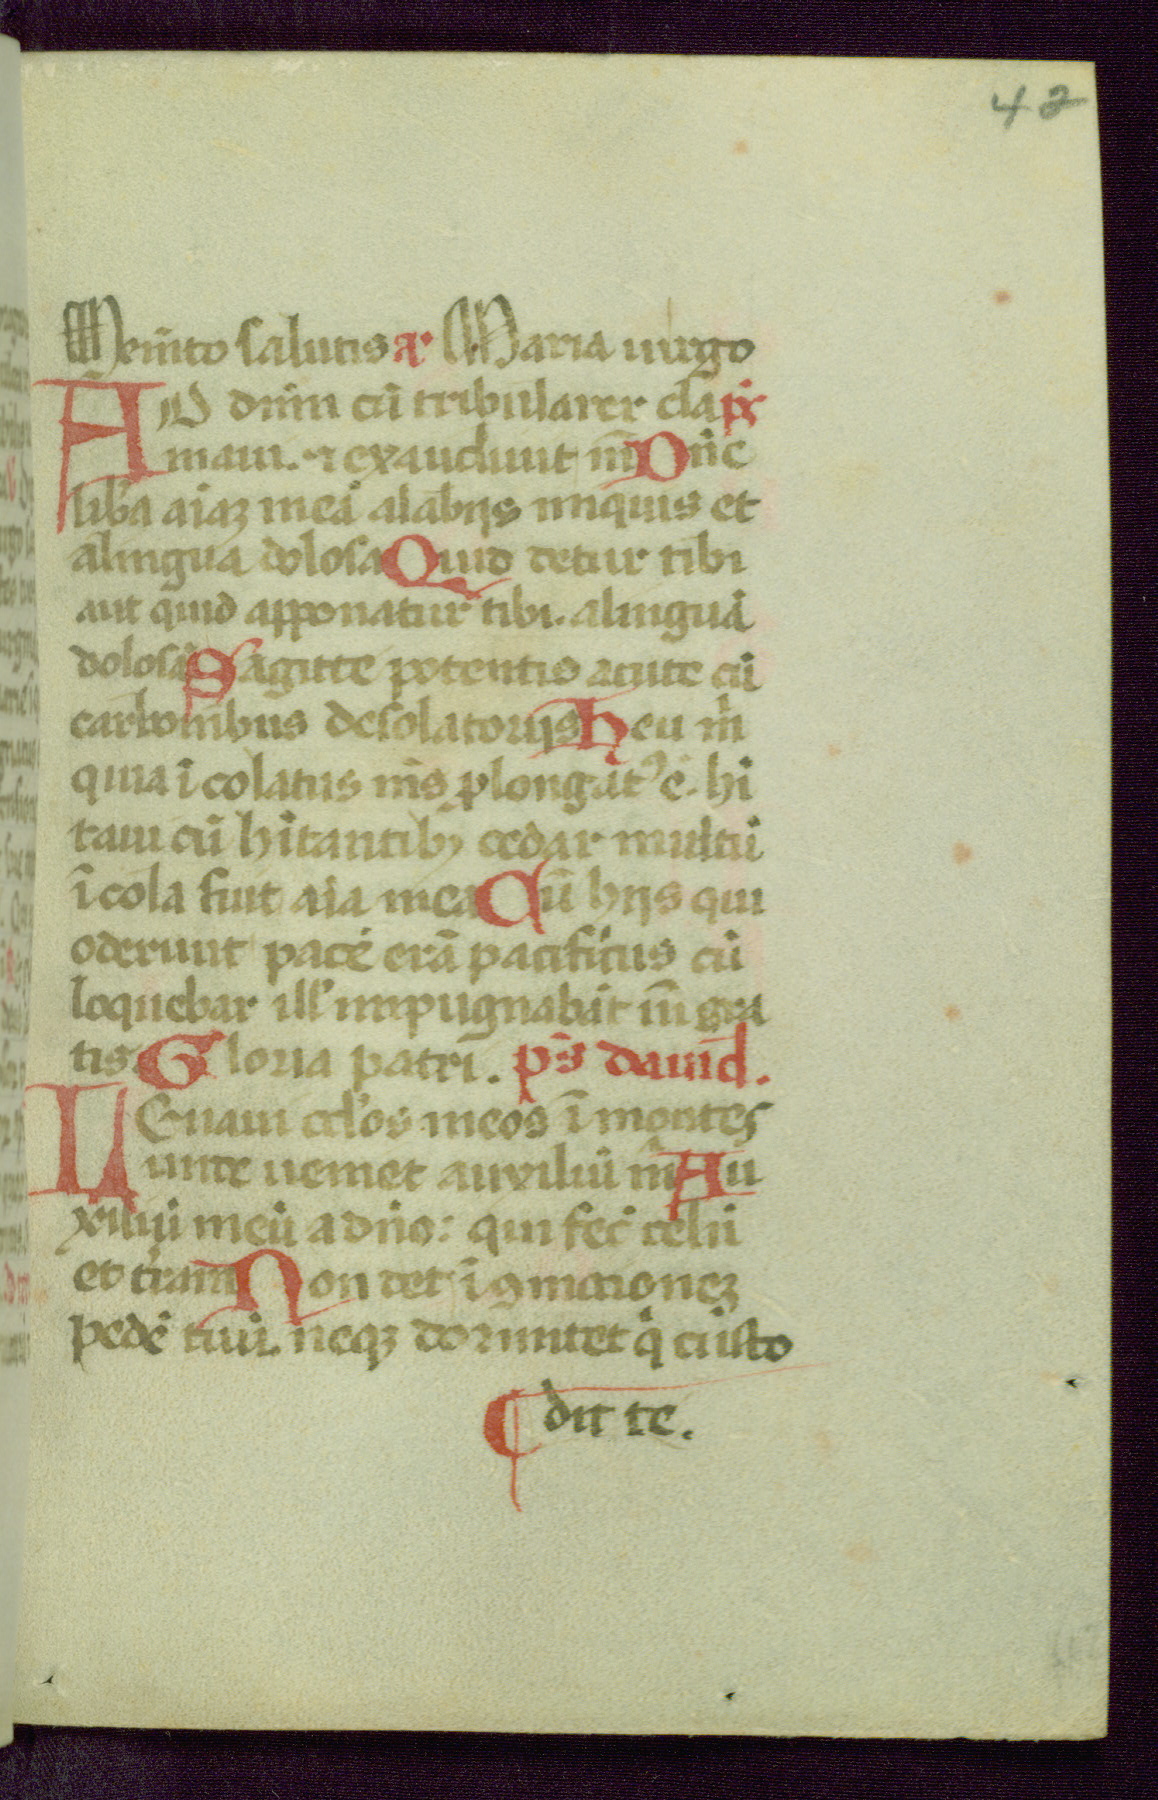 42
Mem̄to salutis añ Maria uirgo
AD dn̄m cū tribularer cla ps̄
maui. ⁊ exaudiuit m̄ Dn̄e
lib̄a aiaꝫ meā alabijs iniquis et
alingua dolosa Quid detur tibi
aut quid apponatur tibi. alinguā
dolosā Sagitte potentis acute cū
carbonibus desolatorijs Heu m̄
quia ī colatus m̄s ꝓlongatꝰ ē. hi
taui cū hītantibꝫ cedar multū
ī cola fuit aīa mea Cū hijs qui
oderunt pacē erā pacificus cū
loquebar ill' impugnabāt m̄ gra
tis Gloria patrī. ps̄ dauid.
LEuaui ocl'os meos ī montes
unde ueniet auxiliū m̄ Au
xiliū meū a dn̄o: qui fec̄ celū
et t̄ram Non det ī ꝯmotioneꝫ
pedē tuū. neqꝫ dormitet q̄ custo
dit te.